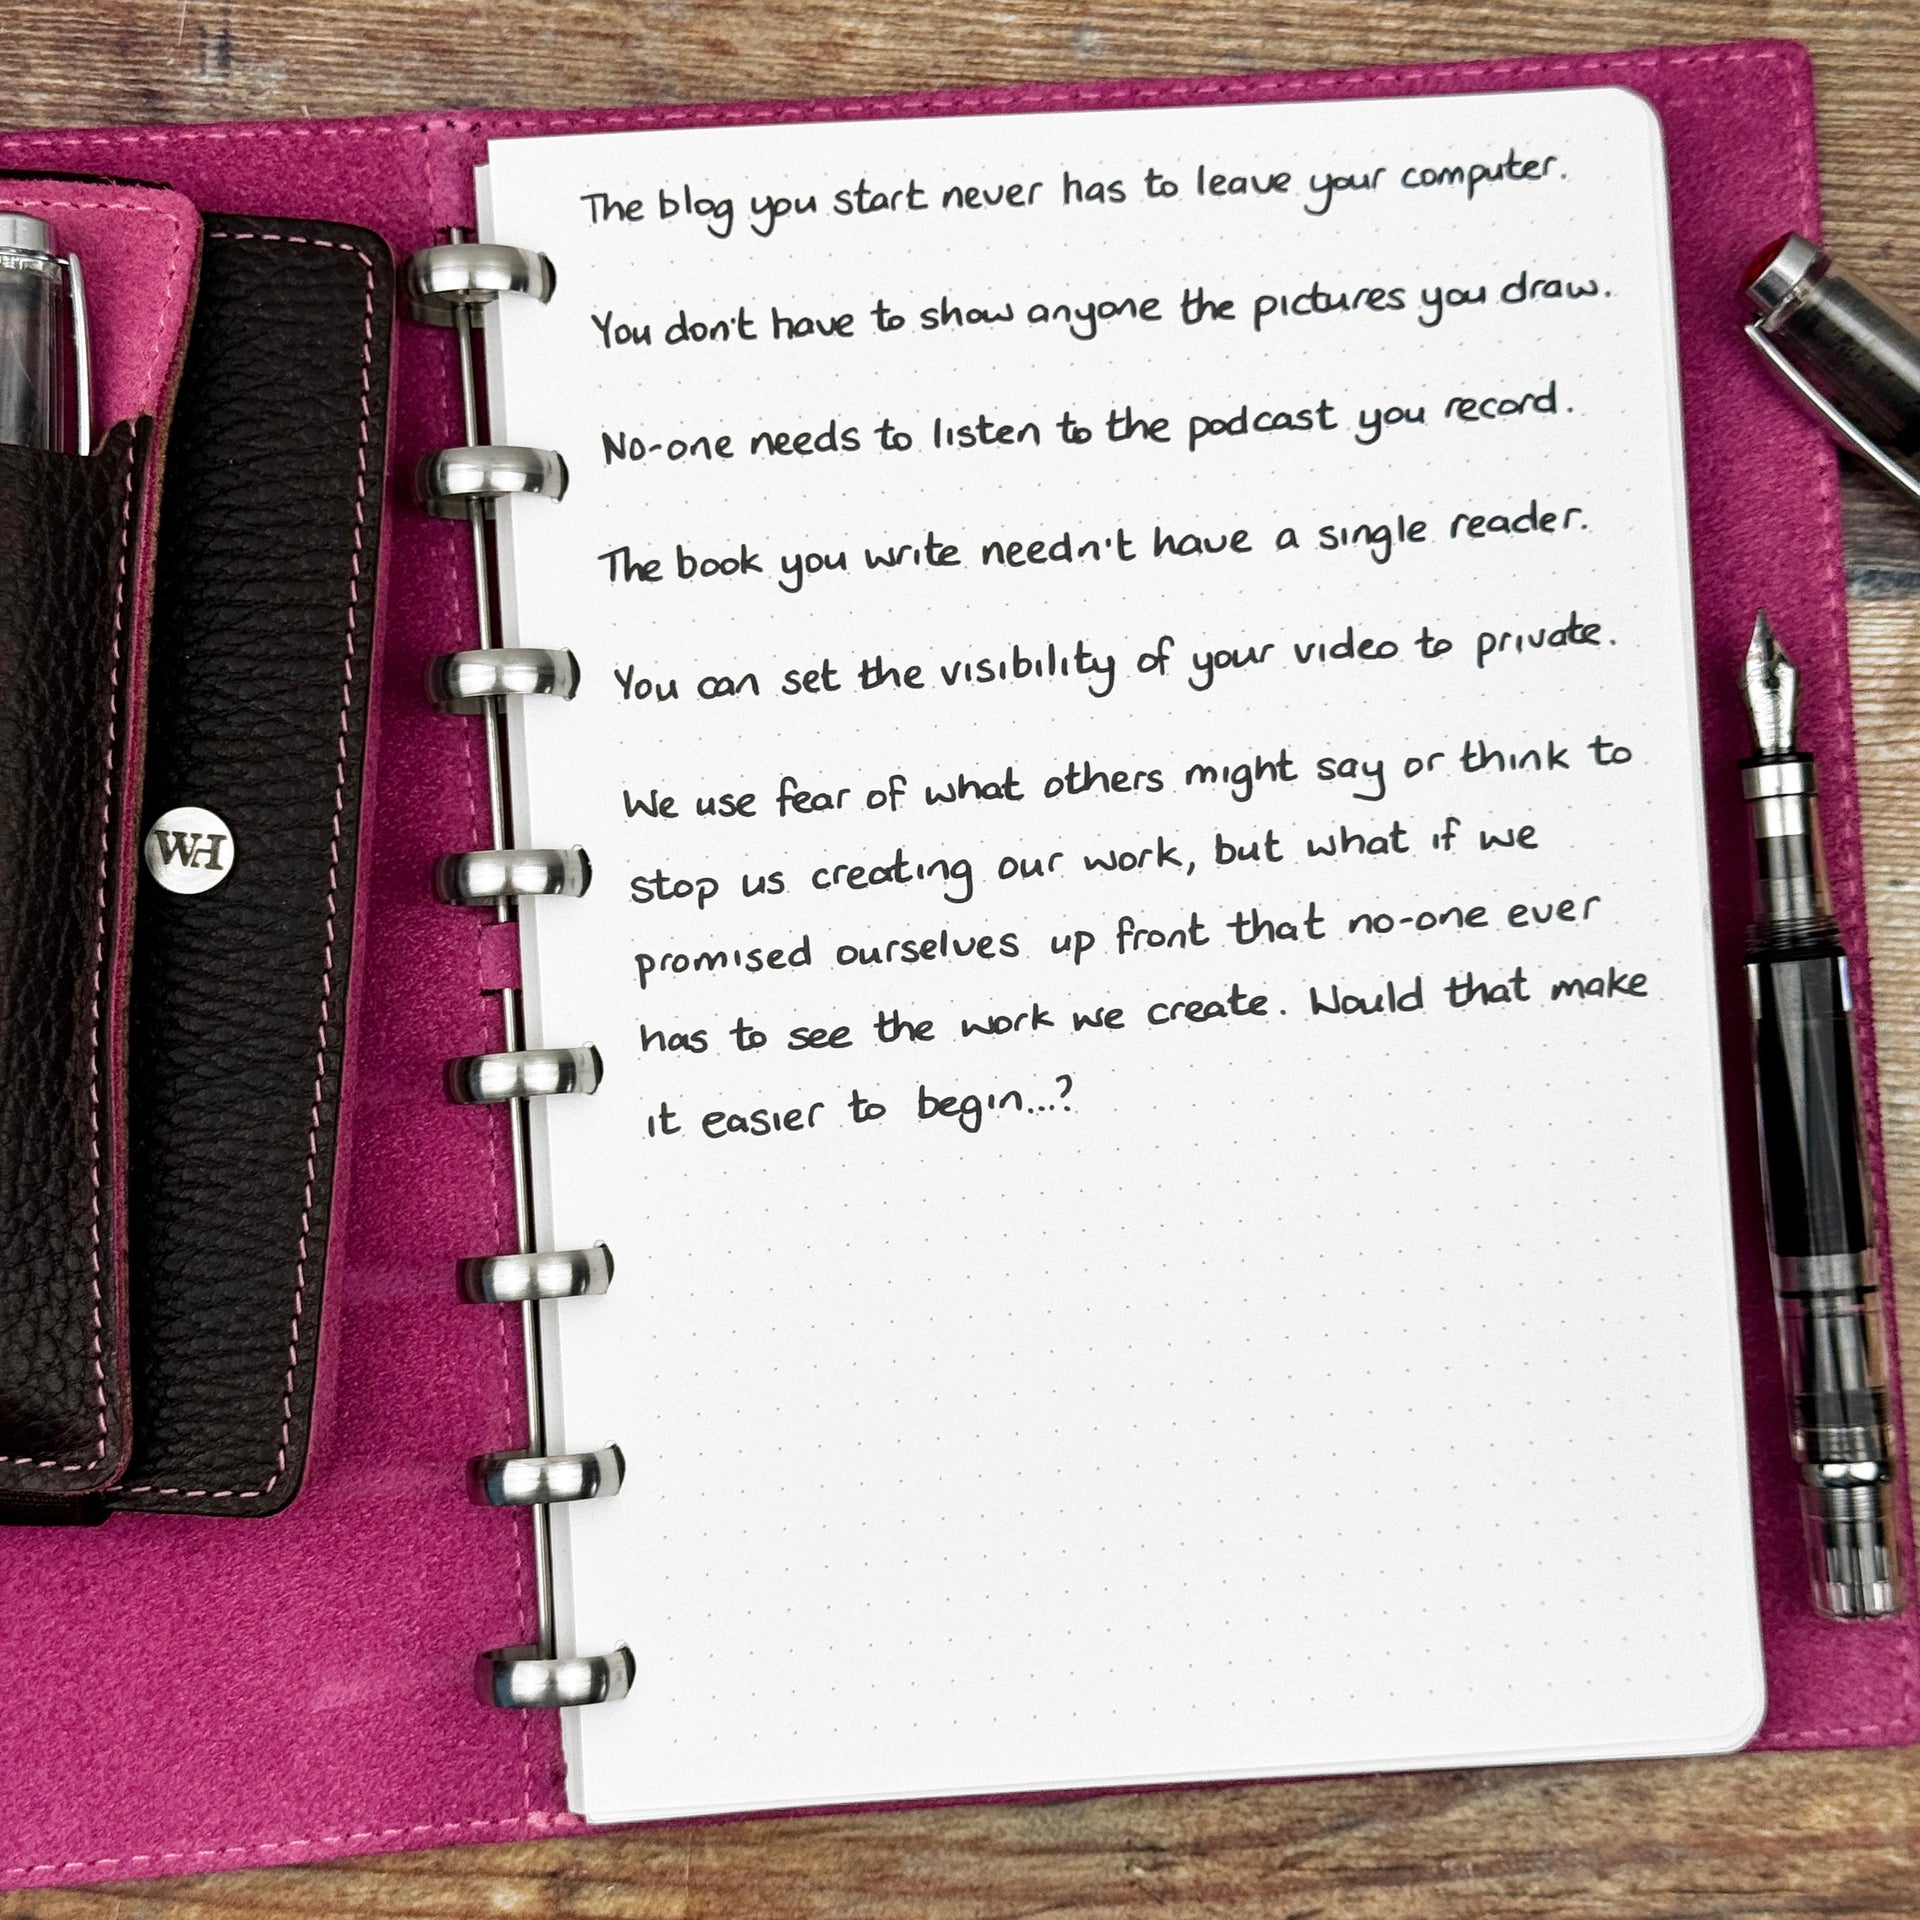 The blog you start never has to leave your computer.
You don't have to show anyone the pictures you draw.
No-one needs to listen to the podcast you record.
The book you write needn't have a single reader.
You can set the visibility of your video to private.
We use fear of what others might say or think to
stop us creating our work, but what if we
promised ourselves up front that no-one ever
has to see the work we create. Would that make
it easier to begin...?
WH